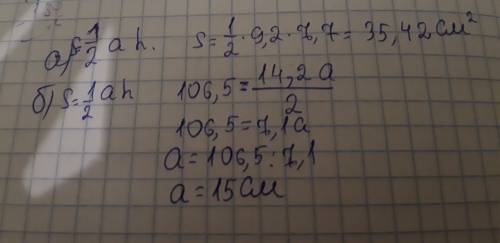 а) S=1/2 a h. S=1/2·9,2·7,7=35,42 см²
б) S=1/2 a h 106,5=14,2a/2
106,5=7,1a
a=106,5:7,1
a=15 см